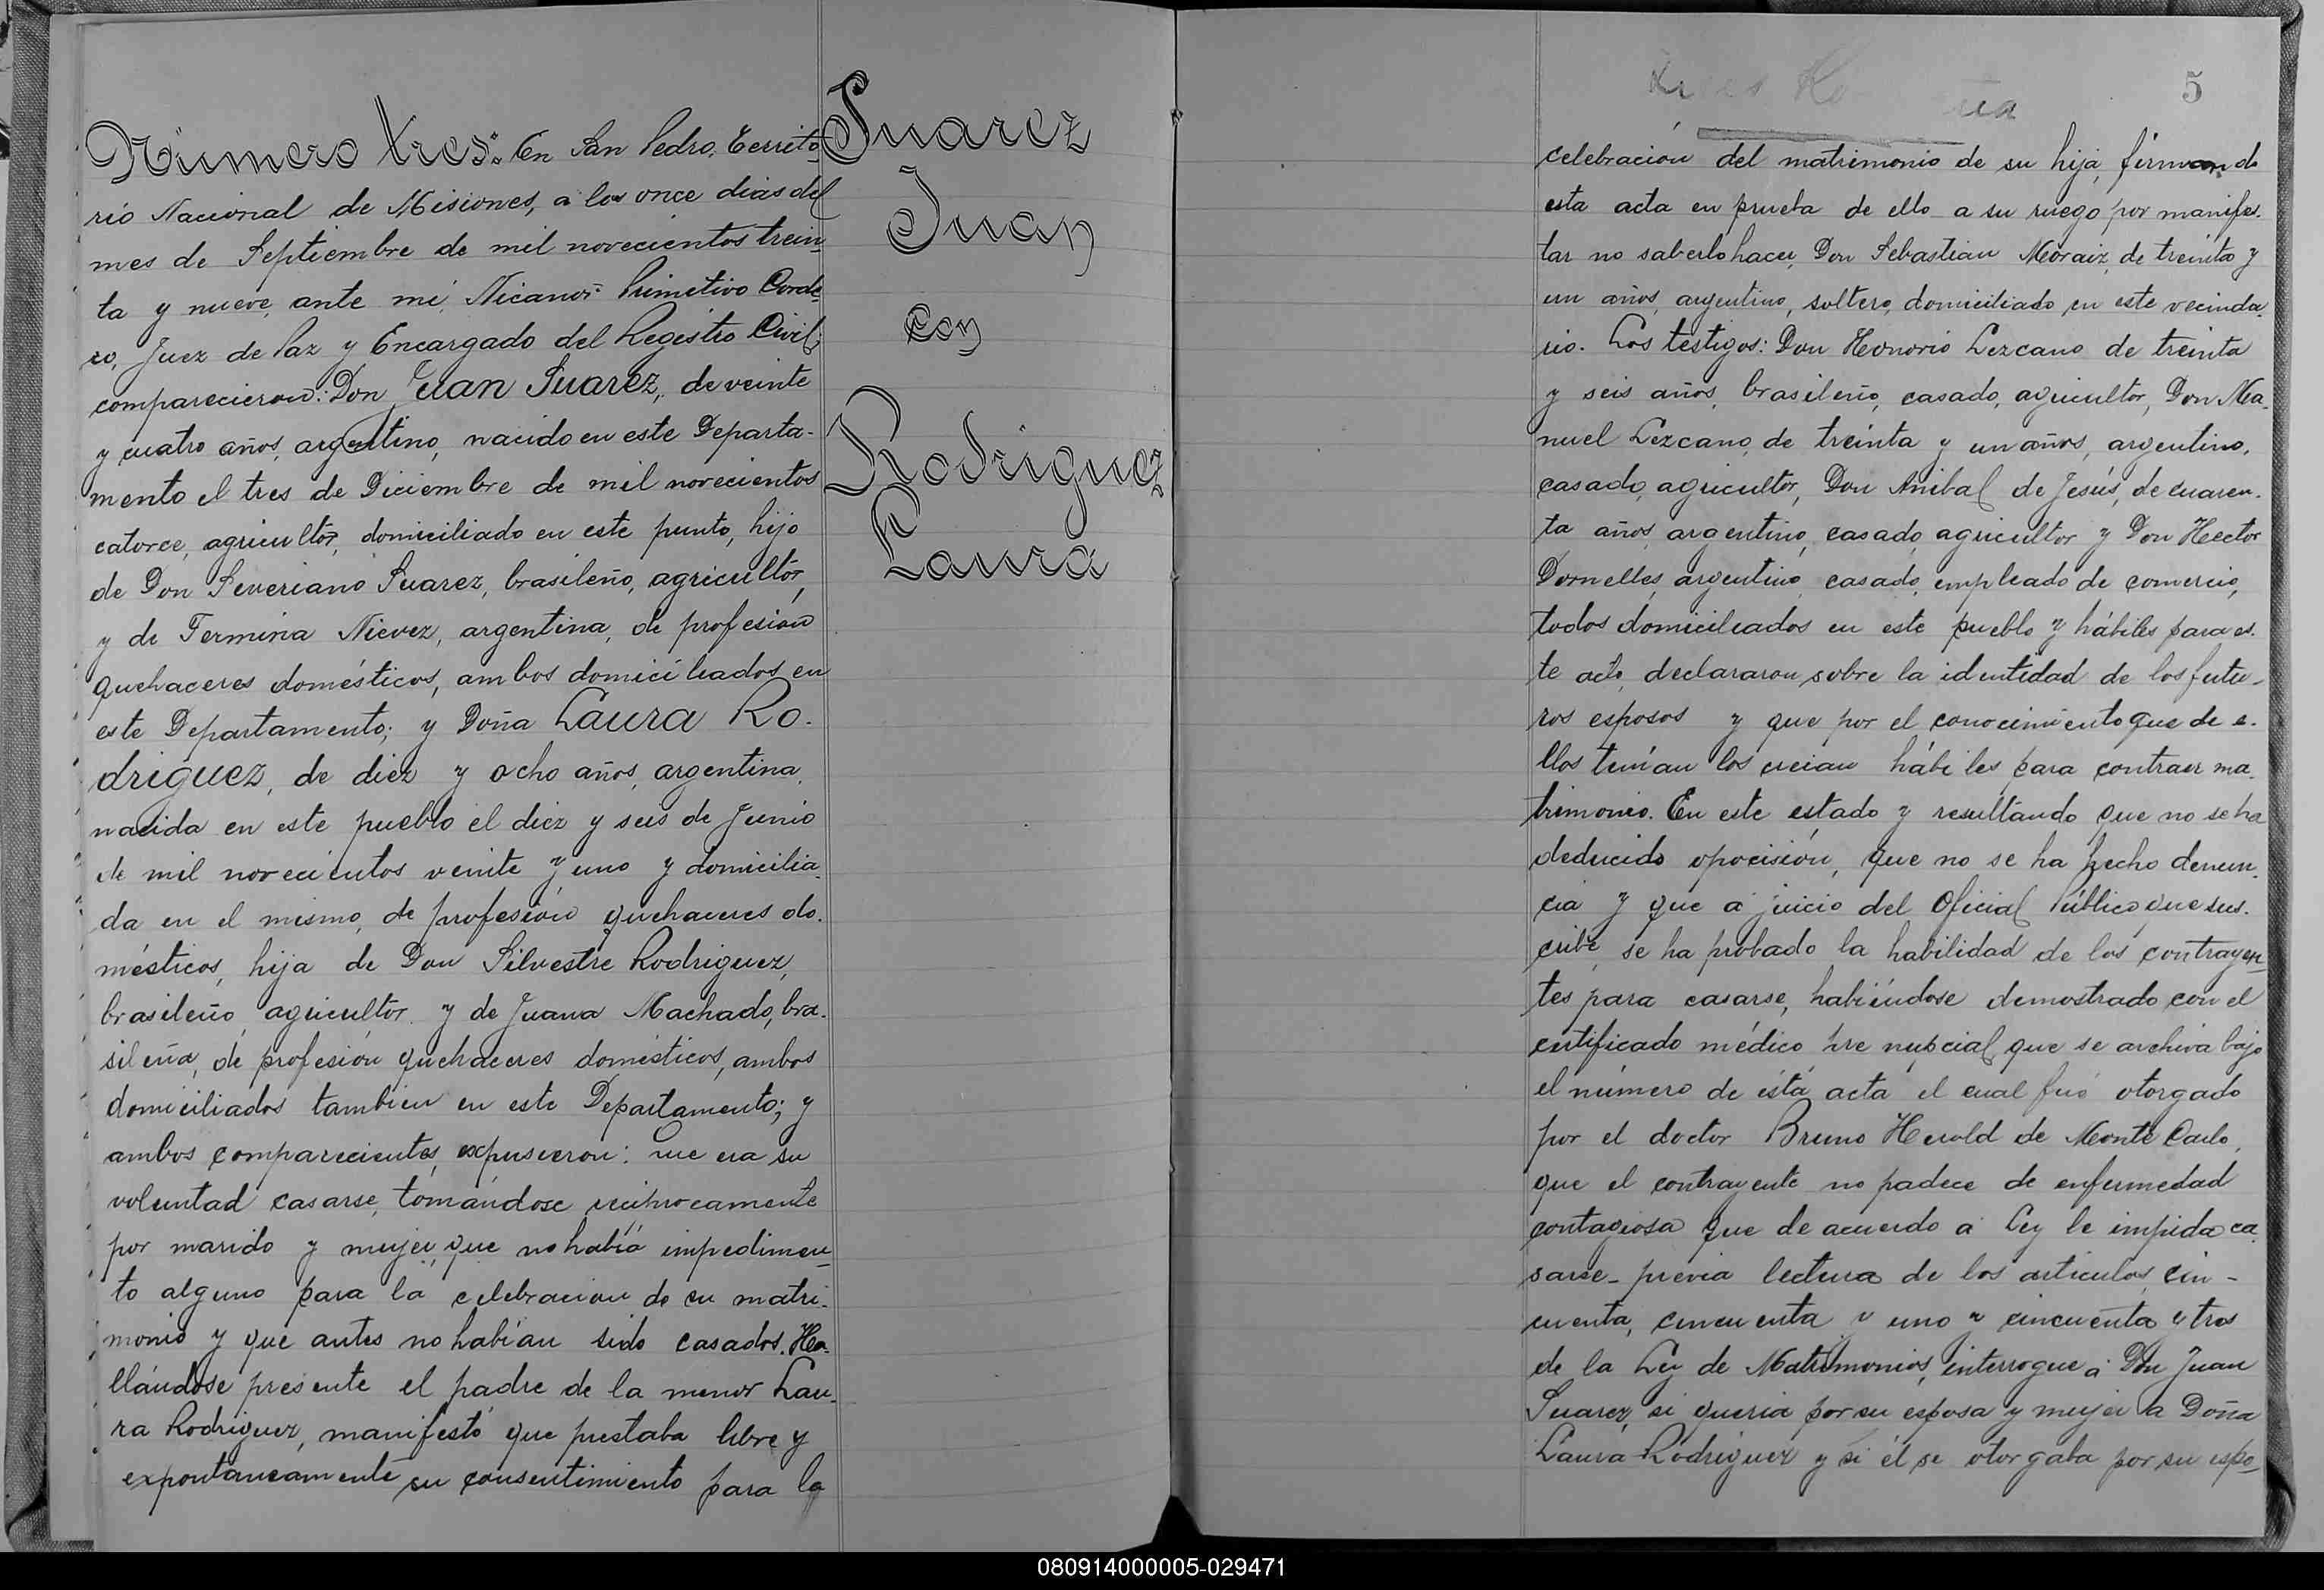 Número tres: En San Pedro, Territo-
rio Nacional de Misiones, a los once dias del
mes de Septiembre de mil novecientos trein-
ta y nueve, ante mí, Nicanor Primitivo Corde-
ro, Juez de Paz y Encargado del Registro Civil;
comparecieron: Don Juan Suarez, de veinte
y cuatro años, argentino, nacido en este Departa-
mento el tres de Diciembre de mil novecientos
catorce, agricultor, domiciliado en este punto, hijo
de Don Severiano Suarez, brasileño, agricultor,
y de Fermina Nievez, argentina, de profesión
quehaceres domésticos, ambos domiciliados en
este Departamento; y Doña Laura Ro-
driguez, de diez y ocho años, argentina,
nacida en este pueblo el diez y seis de Junio
de mil novecientos veinte y uno y domicilia-
da en el mismo, de profesión quehaceres do-
mésticos, hija de Don Silvestre Rodriguez,
brasileño, agricultor y de Juana Machado, bra-
sileña, de profesión quehaceres domésticos, ambos
domiciliados tambien en este Departamento; y
ambos comparecientes, expusieron: Que era su
voluntad casarse, tomándose recíprocamente
por marido y mujer, que no había impedimen-
to alguno para la celebracion de su matri-
monio y que antes no habían sido casados. Ha-
llándose presente el padre de la menor Lau-
ra Rodriguez, manifestó que prestaba libre y
expontaneamente su consentimiento para la
Suarez
Juan
con
Rodriguez
Laura
5
celebración del matrimonio de su hija, firmando
esta acta en prueba de ello a su ruego por manifes-
tar no saberlo hacer, Don Sebastian Moraiz, de treinta y
un años, argentino, soltero, domiciliado en este vecinda-
rio. Los testigos: Don Honorio Lezcano de treinta
y seis años, brasileño, casado, agricultor, Don Ma-
nuel Lezcano, de treinta y un años, argentino,
casado, agricultor, Don Anibal de Jesús, de cuaren-
ta años, argentino, casado, agricultor y Don Hector
Dornelles, argentino, casado, empleado de comercio,
todos domiciliados en este pueblo y hábiles para es-
te acto, declararon sobre la identidad de los futu-
ros esposos y que por el conocimiento que de e-
llos tenían los creian hábiles para contraer ma-
trimonio. En este estado y resultando que no se ha
deducido oposición, que no se ha hecho denun-
cia y que a juicio del Oficial Público que sus-
cribe, se ha probado la habilidad de los contrayen-
tes para casarse, habiéndose demostrado con el
certificado médico pre nupcial que se archiva bajo
el número de ésta acta el cual fué otorgado
por el doctor Bruno Herold de Monte Carlo,
que el contrayente no padece de enfermedad
contagiosa que de acuerdo a Ley le impida ca-
sarse- previa lectura de los artículos cin-
cuenta, cincuenta y uno y cincuenta y tres
de la Ley de Matrimonios, interrogue a Don Juan
Suarez, si queria por su esposa y mujer a Doña
Laura Rodriguez y si él se otorgaba por su espo-
080914000005-029471